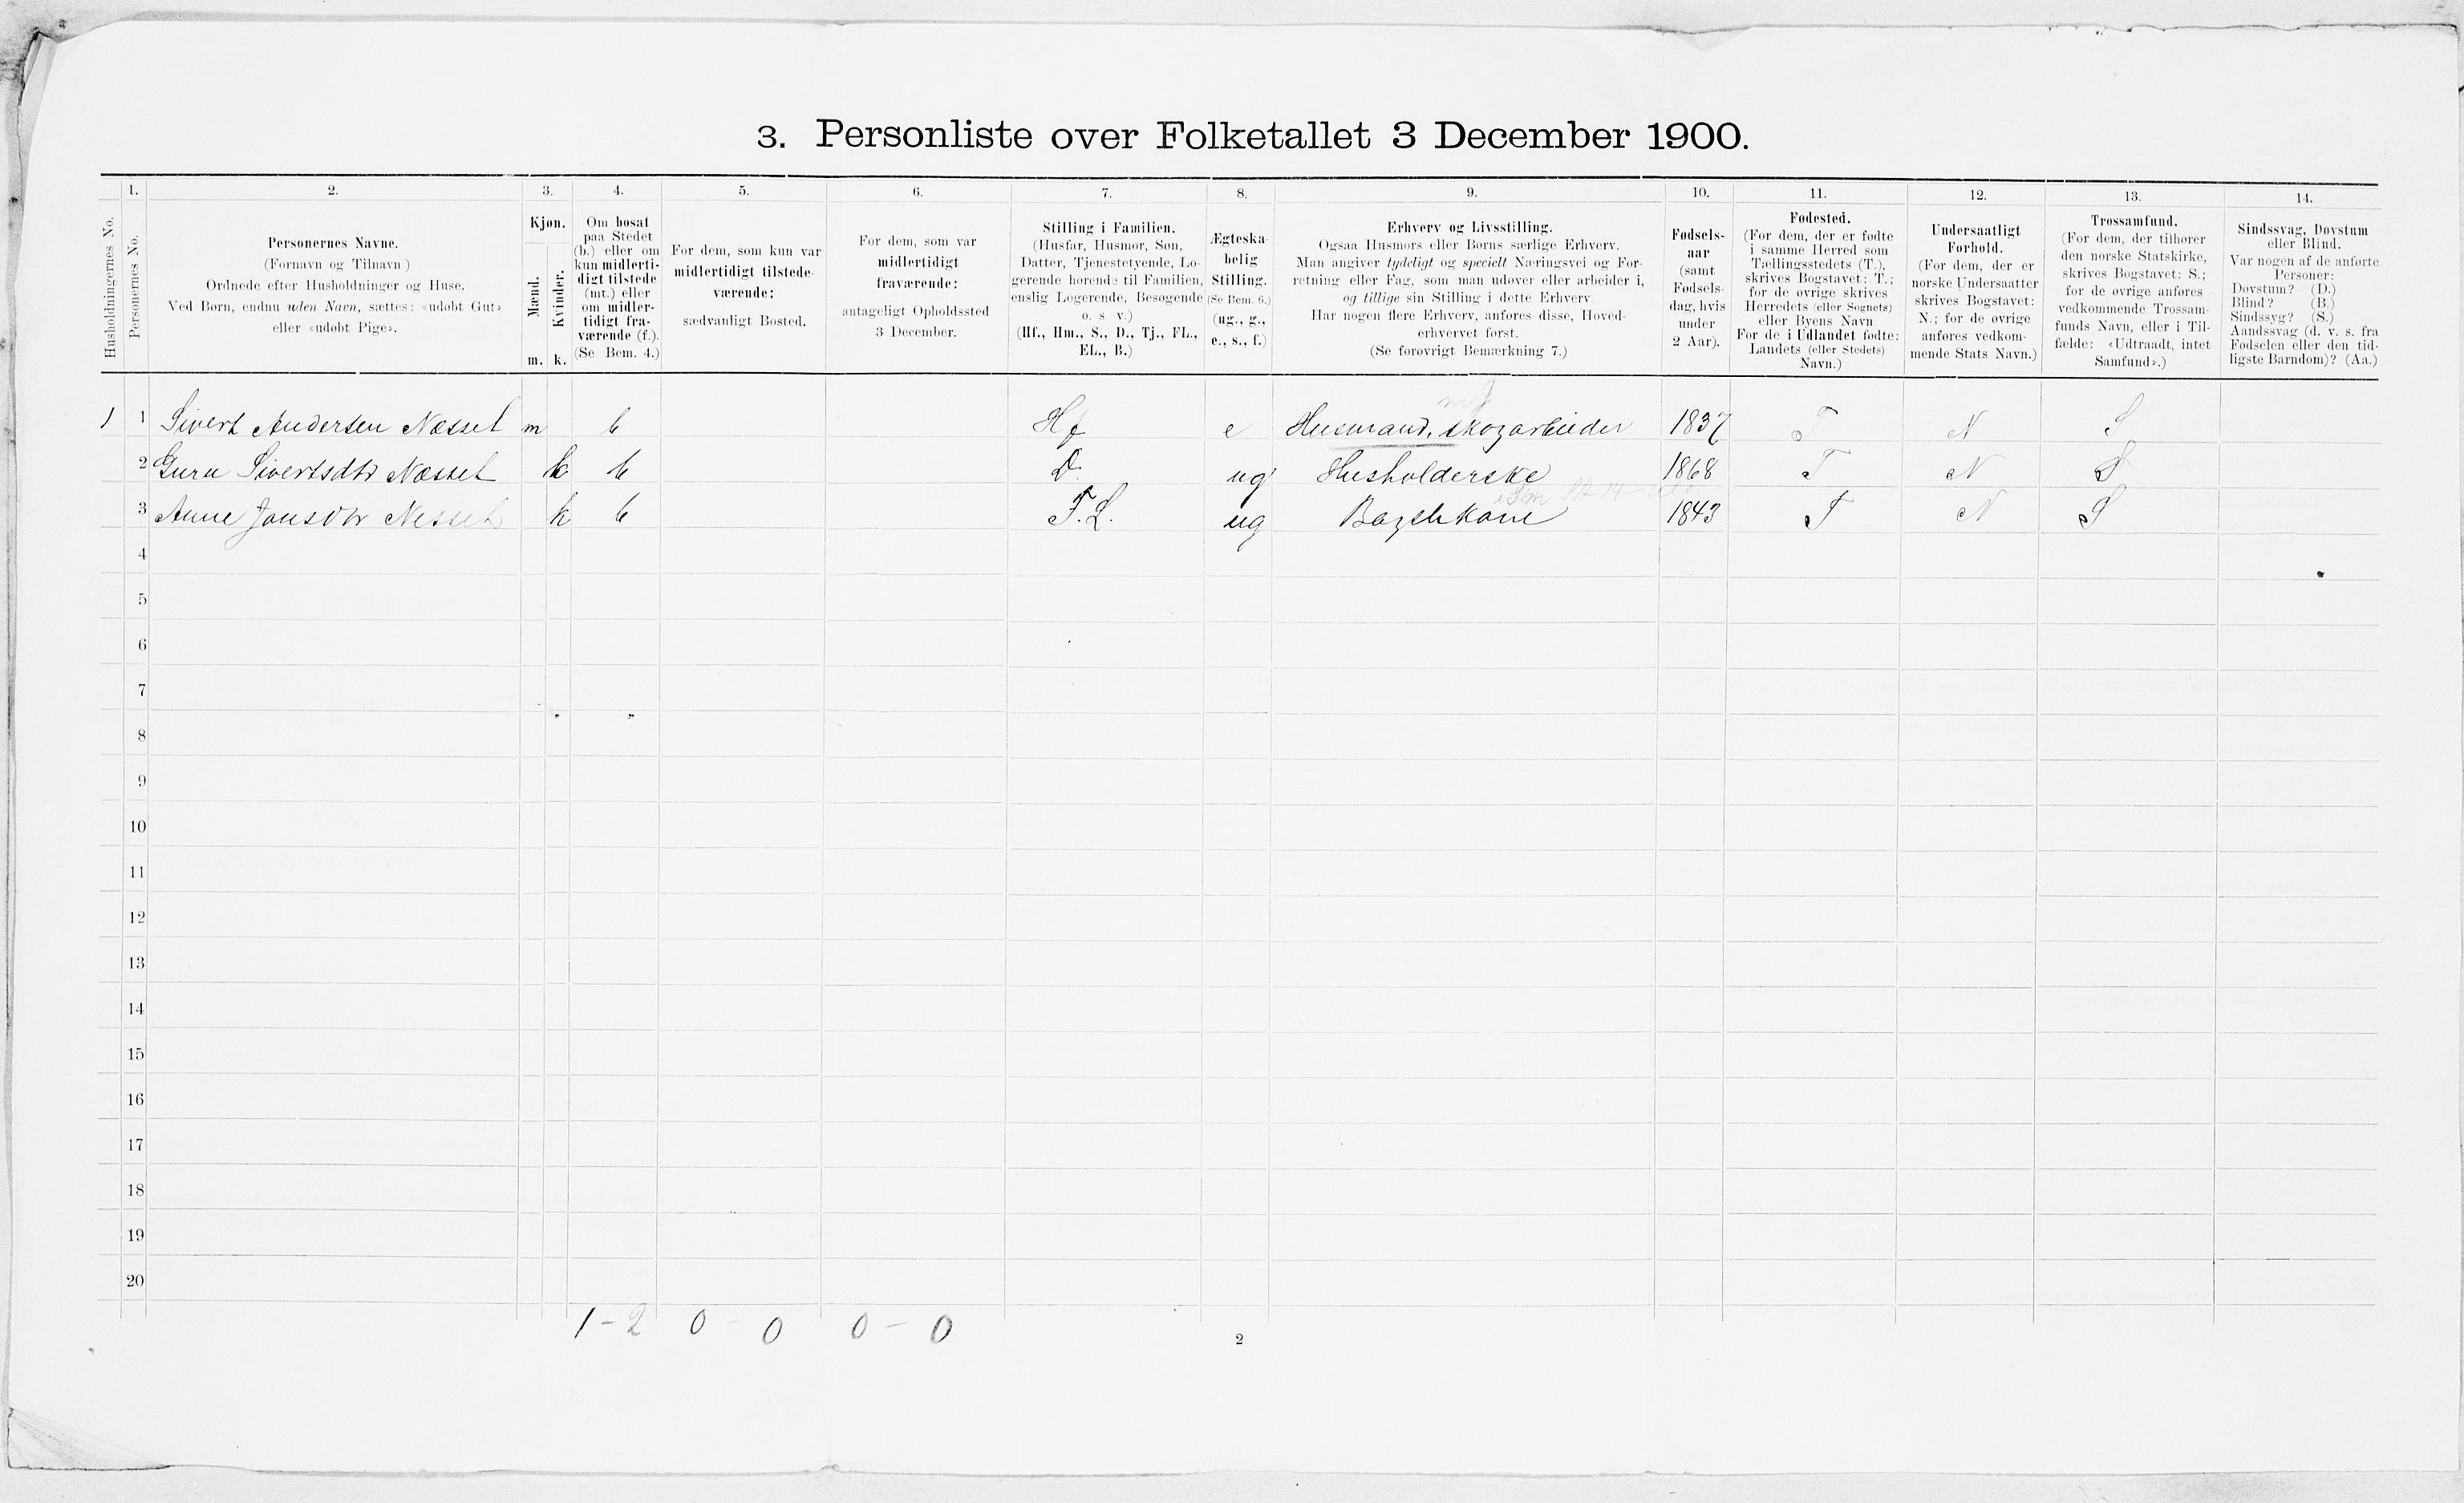 3. Personliste over Folketallet 3 December 1900.
1. 2. 3. 4. 5. 6. 7. 8. 9. 10. 11. 12. 13. 14.
Husholdningernes No.
Personernes No.
Personernes Navne.
(Fornavn og Tilnavn)
Ordnede efter Husholdninger og Huse.
Ved Børn, endnu uden Navn, sættes: «udøbt Gut»
eller «udøbt Pige».
Kjøn.
Mænd.
Kvinder.
m. k.
Om bosat
paa Stedet
(b.) eller om
kun midlerti-
digt tilstede
(mt.) eller
om midler-
tidigt fra-
værende (f.).
(Se Bem. 4.)
For dem, som kun var
midlertidigt tilstede-
værende:
sædvanligt Bosted.
For dem, som var
midlertidigt
fraværende:
antageligt Opholdssted
3 December.
Stilling i Familien.
(Husfar, Husmor, Søn,
Datter, Tjenestetyende, Lo-
gerende hørende til Familien,
enslig Logerende, Besøgende
o. s v.)
(Hf., Hm., S., D., Tj., FL.,
EL., B.)
Ægteska-
belig
Stilling.
(Se Bem. 6.)
(ug., g.,
e., s., f.)
Erhverv og Livsstilling.
Ogsaa Husmors eller Børns særlige Erhverv.
Man angiver tydeligt og specielt Næringsvei og For-
retning eller Fag, som man udøver eller arbeider i,
og tillige sin Stilling i dette Erhverv.
Har nogen flere Erhverv, anføres disse, Hoved-
erhvervet først.
(Se forøvrigt Bemærkning 7.)
Fødsels-
aar
(samt
Fødsels-
dag, hvis
under
2 Aar).
Fødested.
(For dem, der er fødte
i samme Herred som
Tællingsstedets (T.),
skrives Bogstavet: T.;
for de øvrige skrives
Herredets (eller Sognets)
eller Byens Navn
For de i Udlandet fødte:
Landets (eller Stedets)
Navn.)
Undersaatligt
Forhold.
(For dem, der er
norske Undersaatter
skrives Bogstavet:
N.; for de øvrige
anføres vedkom-
mende Stats Navn.)
Trossamfund.
(For dem, der tilhører
den norske Statskirke,
skrives Bogstavet: S.;
for de øvrige anføres
vedkommende Trossam-
funds Navn, eller i Til-
fælde: «Udtraadt, intet
Samfund».)
Sindssvag, Døvstum
eller Blind.
Var nogen af de anførte
Personer:
Døvstum? (D.)
Blind? (B.)
Sindssyg? (S.)
Aandssvag (d. v. s. fra
Fødselen eller den tid-
ligste Barndom)? (Aa.)
1 1 Sivert Andersen Næsset m b Hf e Husmand, skogarbeider 1837 T N S
2 Guru Sivertsdtr Næsset k b D ug Husholderske 1868 T N S
3 Anne Jonsdtr Nesset k b F.L. ug Bagstkone 1843 T N S
4
5
6
7
8
9
10
11
12
13
14
15
16
17
18
19
20
1 - 2 0 - 0 0 - 0
2